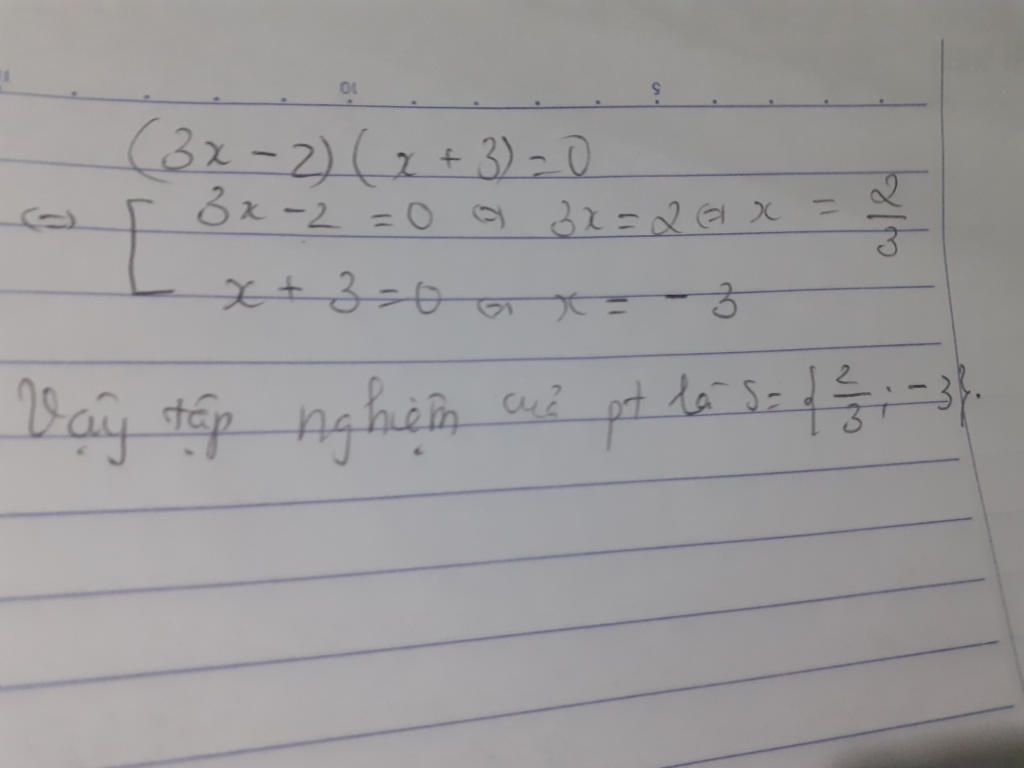 10 5
(3x - 2)(x + 3) = 0
⇔ [ 3x - 2 = 0 ⇔ 3x = 2 ⇔ x = 2/3
x + 3 = 0 ⇔ x = - 3
Vậy tập nghiệm của pt là S = {2/3; -3}.